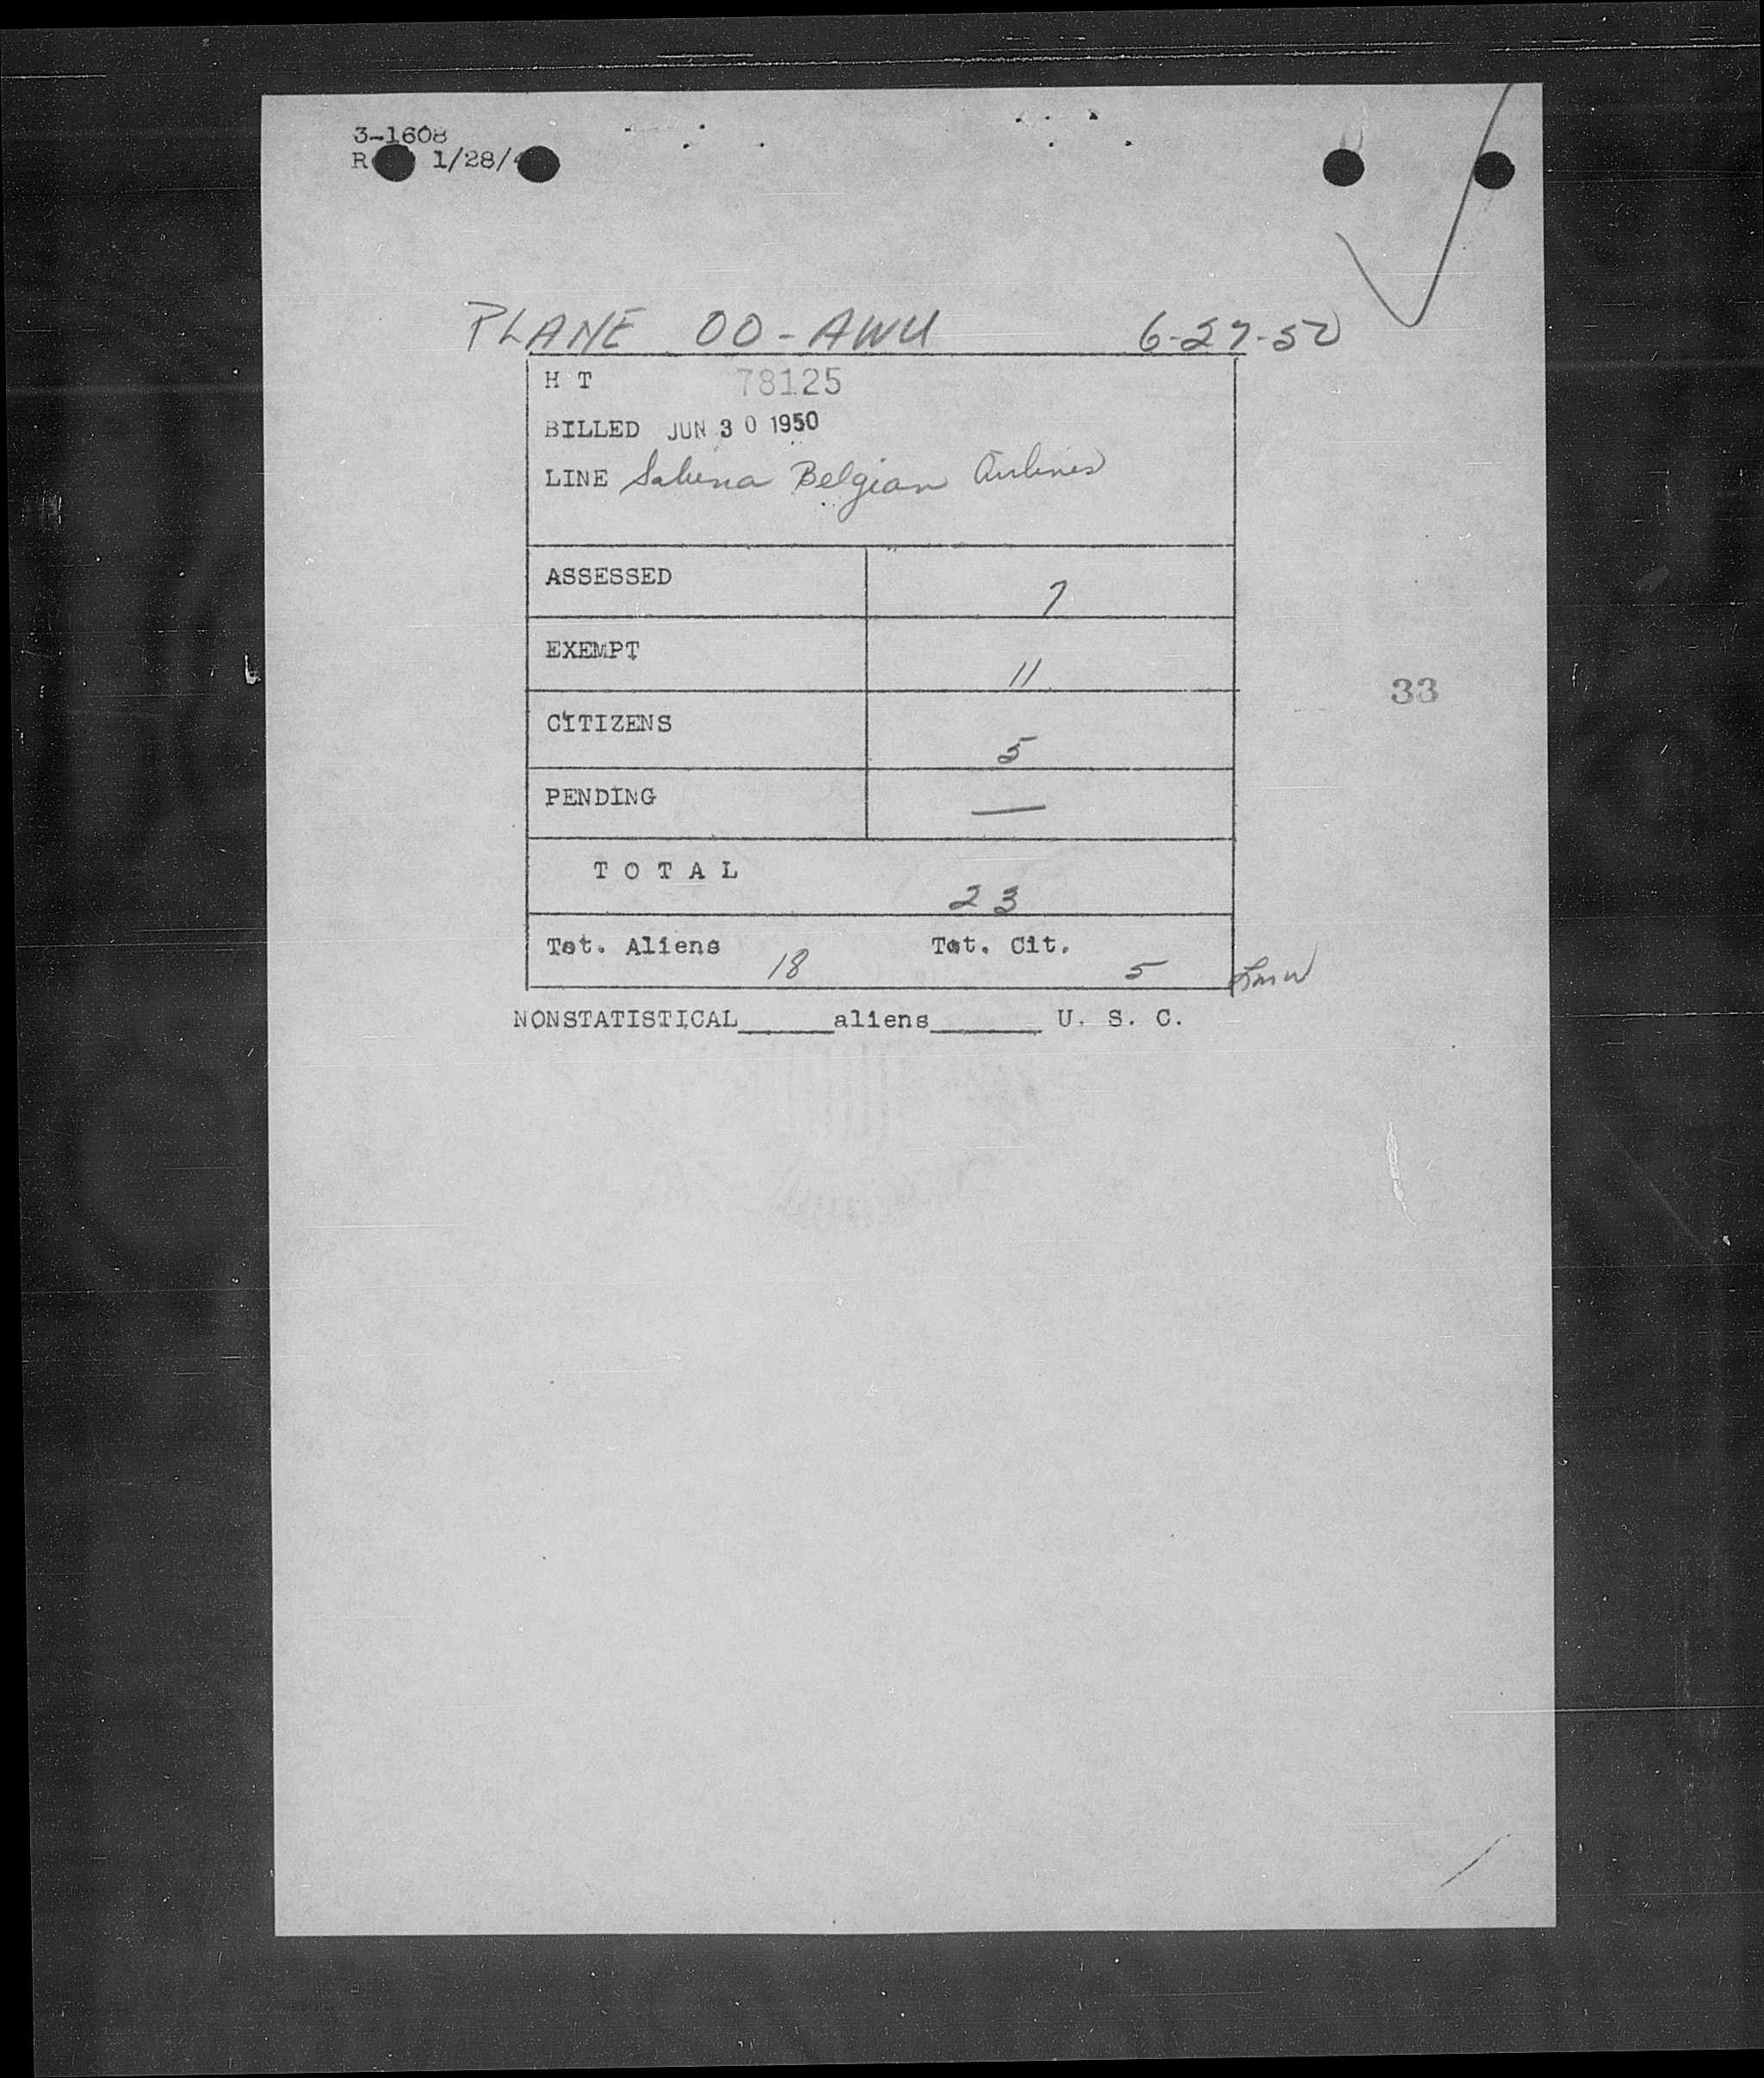 3-1608
R 1/28/4
PLANE OO-AWU 6-27-50
H T 78125
BILLED JUN 30 1950
LINE Sabena Belgian Airlines
ASSESSED 7
EXEMPT 11
33
CITIZENS 5
PENDING —
T O T A L 23
Tot. Aliens 18 Tot. Cit. 5
NONSTATISTICAL______aliens_______ U. S. C.